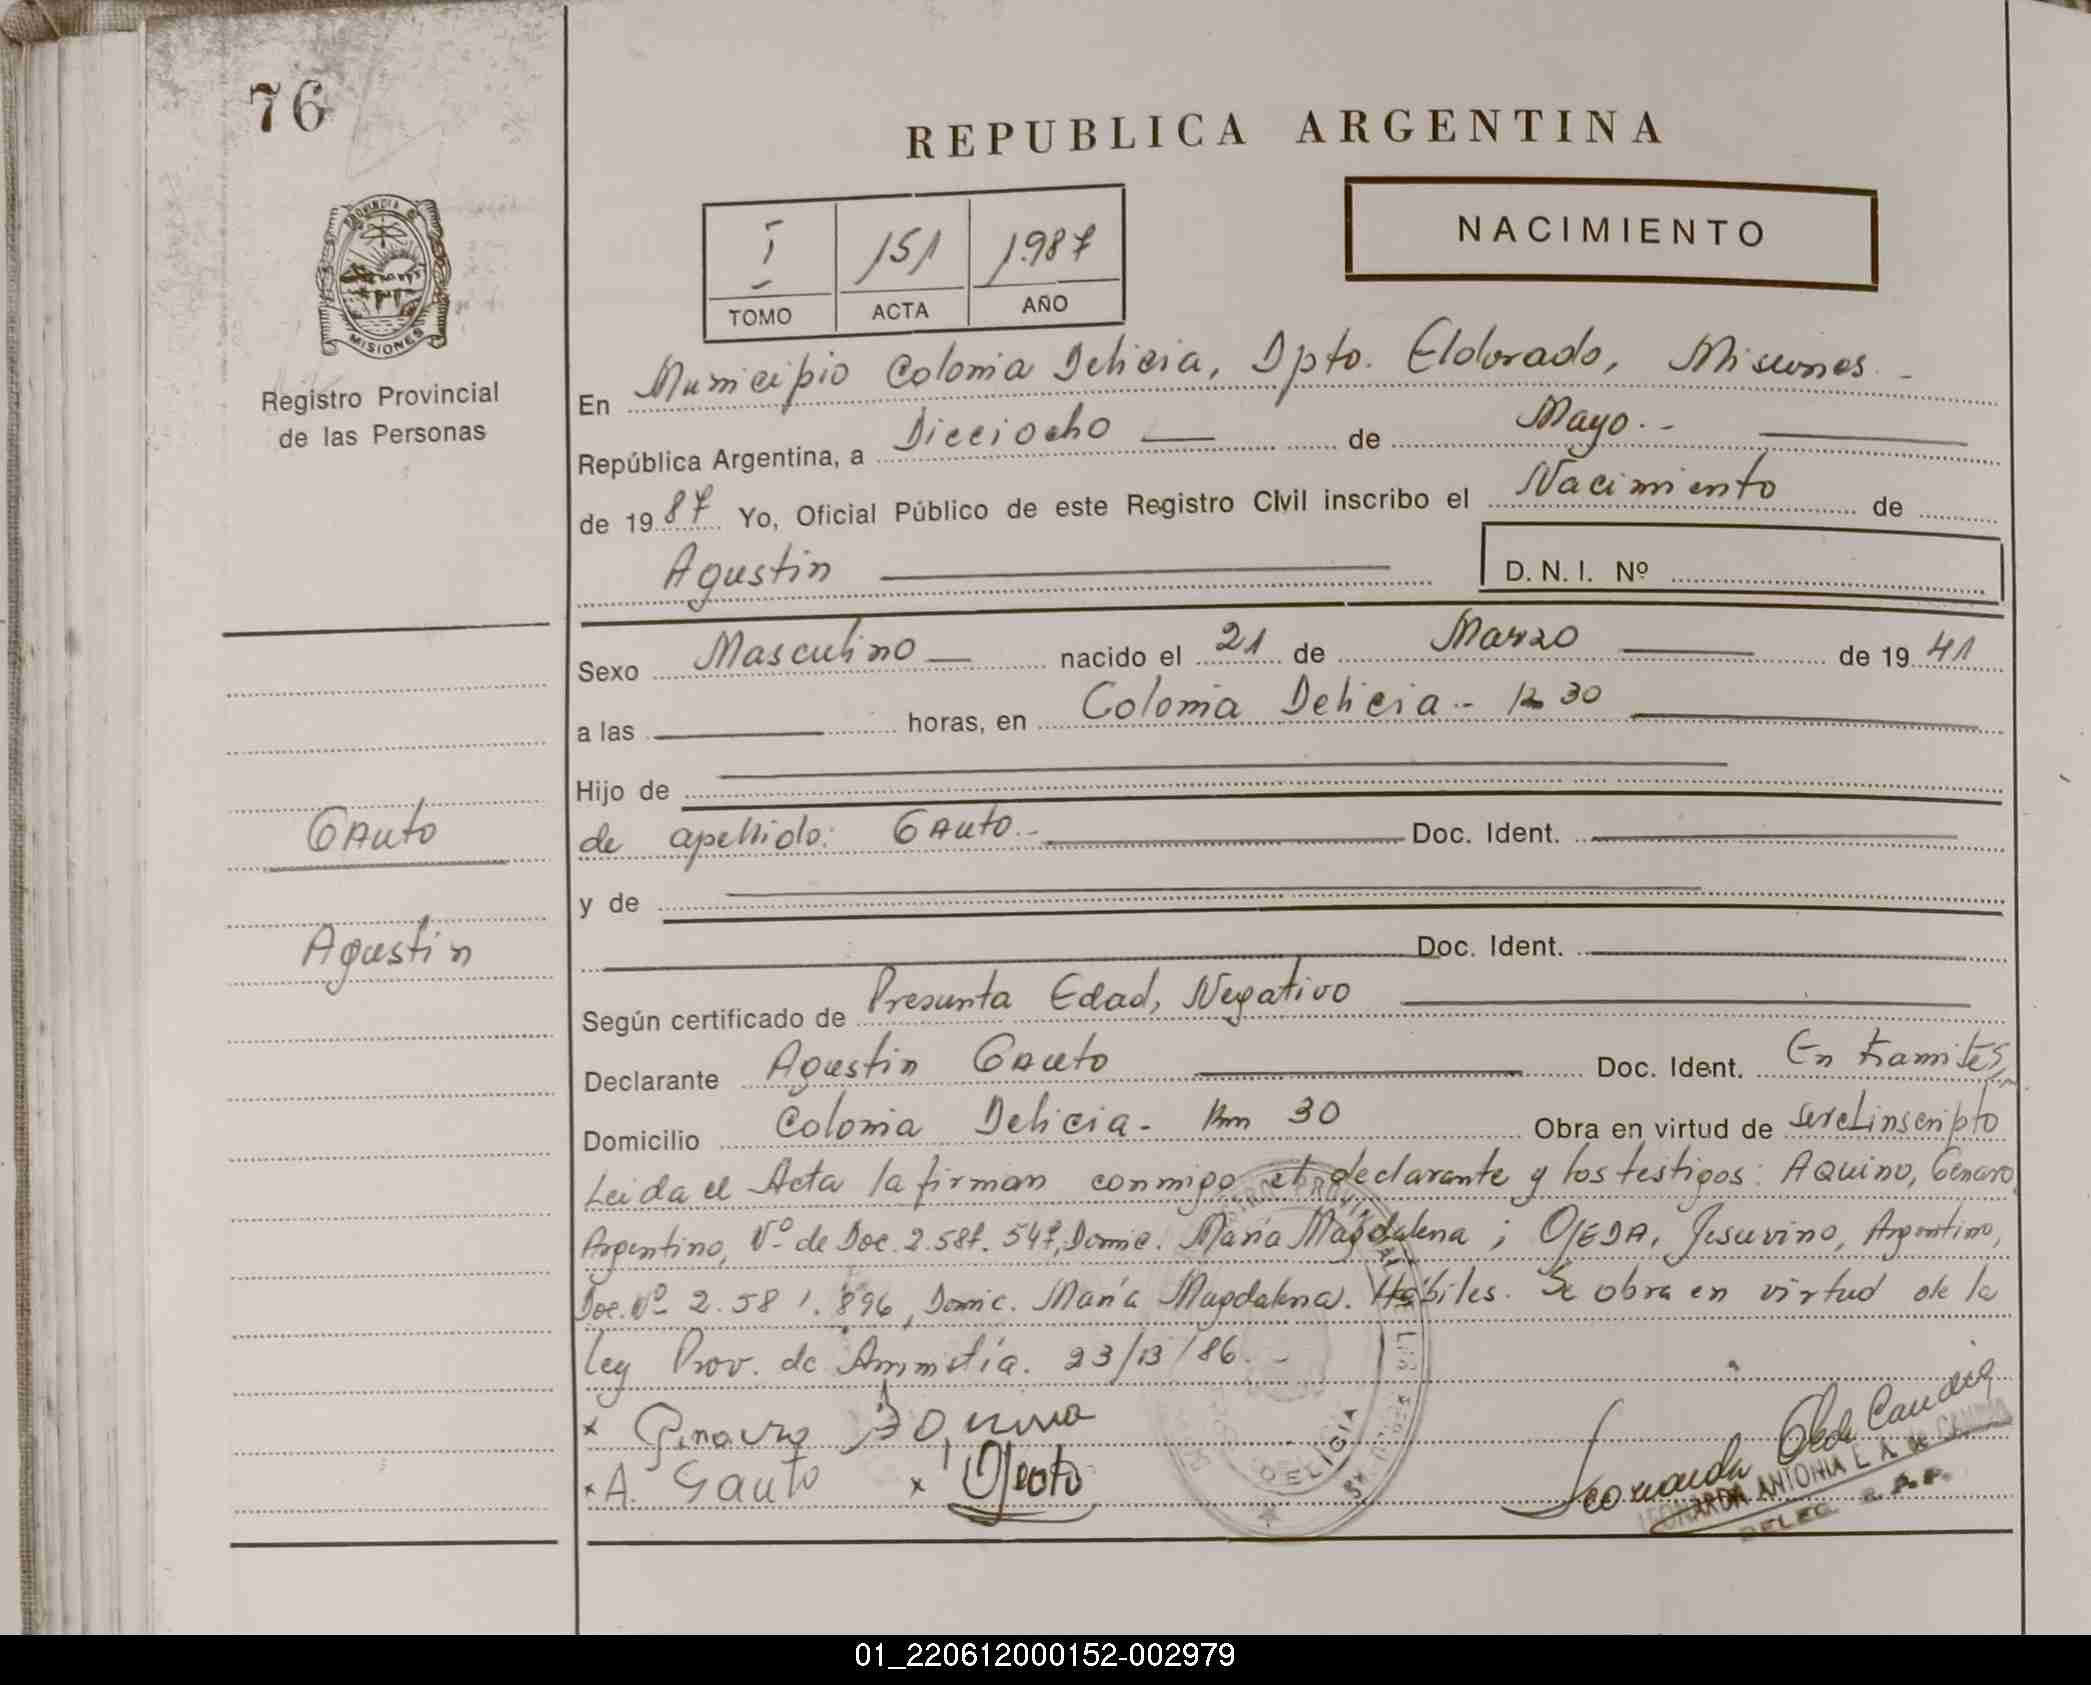 76
REPUBLICA ARGENTINA
NACIMIENTO
I 151 1.987
TOMO ACTA AÑO
PROVINCIA DE
MISIONES
Registro Provincial
de las Personas
En Municipio Colonia Delicia, Dpto. Eldorado, Misiones.-
República Argentina, a Dieciocho de Mayo.-
de 1987 Yo, Oficial Público de este Registro Civil inscribo el Nacimiento de
Agustin
D. N. I. Nº
Sexo Masculino nacido el 21 de Marzo de 1941
a las horas, en Colonia Delicia - 30
Hijo de
de apellido: Gauto.- Doc. Ident.
y de
Doc. Ident.
Gauto
Agustin
Según certificado de Presunta Edad, Negativo
Declarante Agustin Gauto Doc. Ident. En tramites,
Domicilio Colonia Delicia - Km 30 Obra en virtud de ser el inscripto
Leida el Acta la firman conmigo el declarante y los testigos: Aquino, Genaro
Argentino, Nº de Doc. 2.587.547, Domic. Maria Magdalena; OJEDA, Jesuvino, Argentino,
Doc. Nº 2.581.896, Domic. Maria Magdalena. Hábiles. Se obra en virtud de la
Ley Prov. de Amnistía. 23/13/86.-
x Genaro
x A. Gauto x
DELICIA
Leonarda
LEONARDA ANTONIA L. A. de CANDIA
DELEG. R. A. P.
01_220612000152-002979